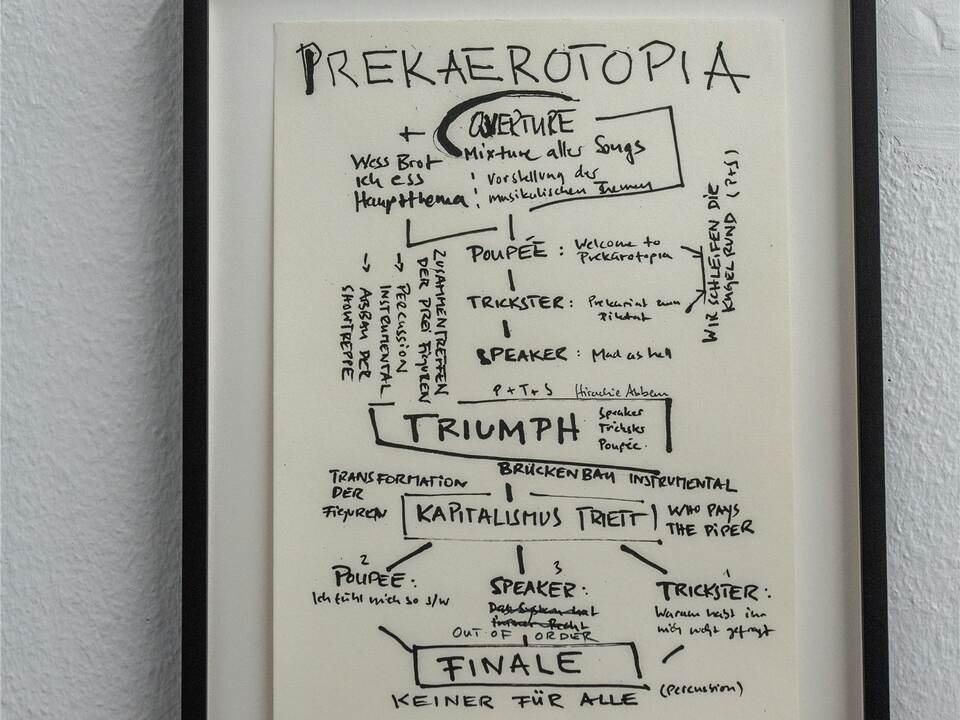 PREKAEROTOPIA
OUVERTURE
Mixture aller Songs
Vorstellung der
musikalischen Themen
+
Wess Brot
ich ess
Hauptthema
POUPÉE : Welcome to
Prekärotopia
TRICKSTER : Prekariat zum
Diktat
SPEAKER : Mad as hell
WIR SCHLEIFEN DIE
KUGEL RUND (P+S)
ZUSAMMENTREFFEN
DER DREI FIGUREN
→ PERCUSSION
INSTRUMENTAL
→ ABBAU DER
SHOWTREPPE
P+T+S Hirachie Abbau
TRIUMPH
Speaker
Trickster
Poupée
BRÜCKENBAU INSTRUMENTAL
TRANSFORMATION
DER
FIGUREN
KAPITALISMUS TRIETT
WHO PAYS
THE PIPER
2
POUPÉE :
Ich fühl mich so s/w
3
SPEAKER :
Das System hat
immer Recht
OUT OF ORDER
1
TRICKSTER :
Warum habt ihr
mich nicht gefragt
FINALE
(Percussion)
KEINER FÜR ALLE